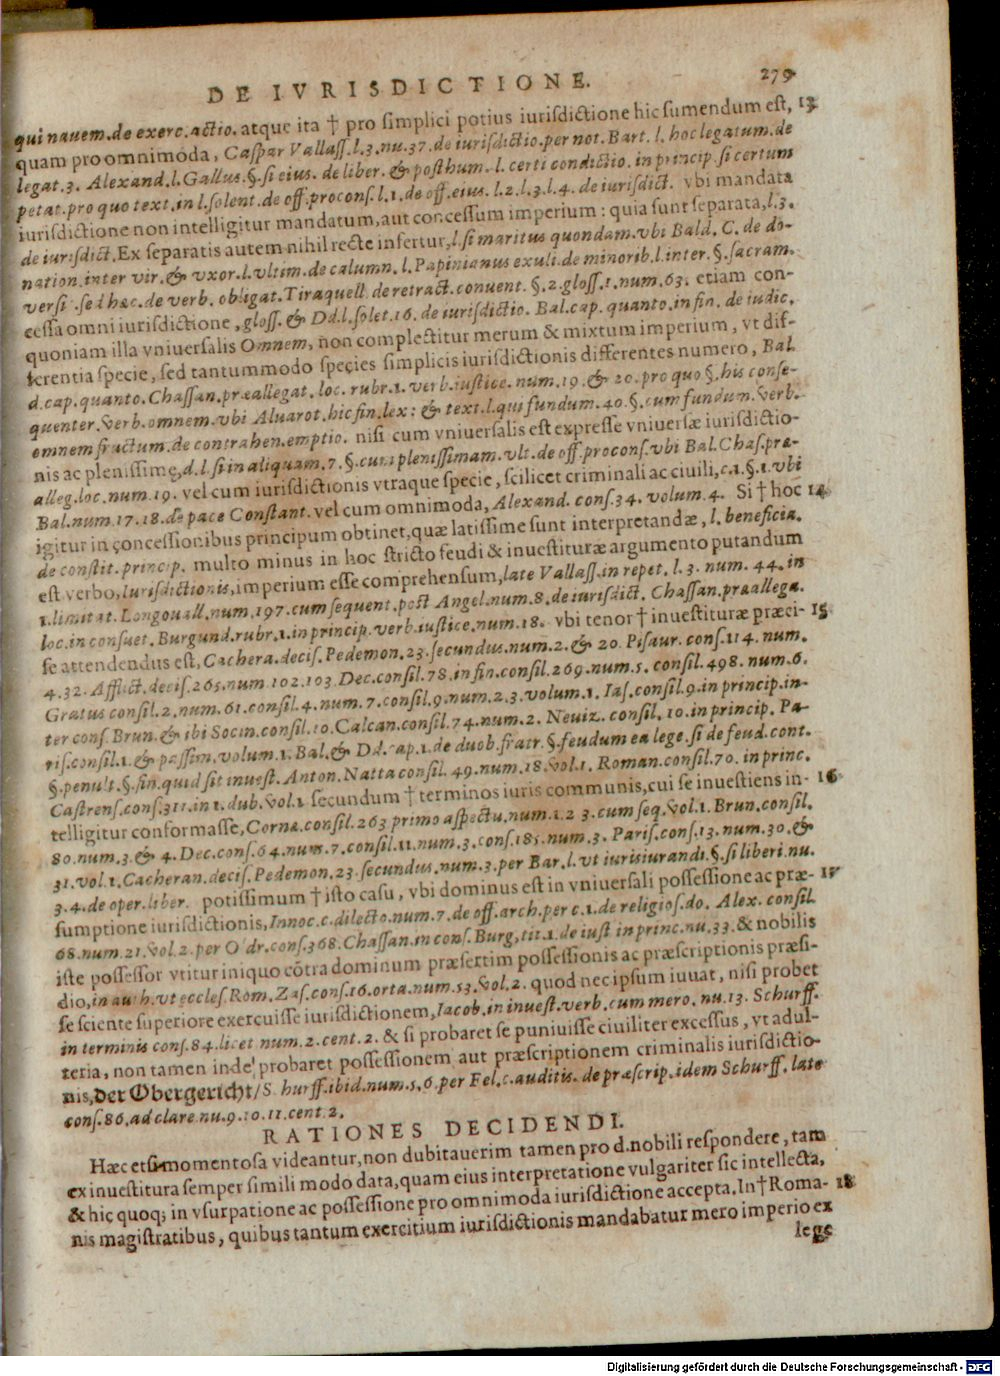 DE IVRISDICTIONE. 279
qui nauem. de exerc. actio. atque ita † pro simplici potius iurisdictione hic sumendum est, 13
quam pro omnimoda, Caspar Vallass. l. 3. nu. 37. de iurisdictio. per not. Bart. l. hoc legatum. de
legat. 3. Alexand. l. Gallus. §. si eius. de liber. & posthum. l. certi condictio. in princip. si certum
petat. pro quo text. in l. solent. de off. procons. l. 1. de off. eius. l. 2. l. 3. l. 4. de iurisdict. vbi mandata
iurisdictione non intelligitur mandatum, aut concessum imperium: quia sunt separata, l. 3.
de iurisdict. Ex separatis autem nihil recte infertur, l. si maritus quondam. vbi Bald. C. de do-
nation. inter vir. & vxor. l. vltim. de calumn. l. Papinianus exuli. de minorib. l. inter. §. sacram.
versi. sed hæc. de verb. obligat. Tiraquell. de retract. conuent. §. 2. gloss. 1. num. 63. etiam con-
cessa omni iurisdictione, gloss. & Dd. l. solet. 16. de iurisdictio. Bal. cap. quanto. in fin. de iudic.
quoniam illa vniuersalis Omnem, non complectitur merum & mixtum imperium, vt dif-
ferentia specie, sed tantummodo species simplicis iurisdictionis differentes numero, Bal.
d. cap. quanto. Chassan. præallegat. loc. rubr. 1. verb. iustice. num. 19. & 20. pro quo §. his conse-
quenter. verb. omnem. vbi Aluarot. hic fin. lex: & text. l. qui fundum. 40. §. cum fundum. verb.
omnem fructum. de contrahen. emptio. nisi cum vniuersalis est expresse vniuersæ iurisdictio-
nis ac plenissime, d. l. si in aliquam. 7. §. cum plenissimam. vlt. de off. procons. vbi Bal. Chas. præ-
alleg. loc. num. 19. vel cum iurisdictionis vtraque specie, scilicet criminali ac ciuili, c. 1. §. 1. vbi
Bal. num. 17. 18. de pace Constant. vel cum omnimoda, Alexand. cons. 34. volum. 4. Si † hoc 14
igitur in concessionibus principum obtinet, quæ latissime sunt interpretandæ, l. beneficia.
de constit. princip. multo minus in hoc stricto feudi & inuestituræ argumento putandum
est verbo, Iurisdictionis, imperium esse comprehensum, late Vallass. in repet. l. 3. num. 44. in
1. limitat. Longouall. num. 197. cum sequent. post Angel. num. 8. de iurisdict. Chassan. præallega.
loc. in consuet. Burgund. rubr. 1. in princip. verb. iustice. num. 18. vbi tenor † inuestituræ præci- 15
se attendendus est, Cachera. decis. Pedemon. 23. secundus. num. 2. & 20. Pisaur. cons. 114. num.
4. 32. Afflict. decis. 265. num. 102. 103. Dec. consil. 78. in fin. consil. 269. num. 5. consil. 498. num. 6.
Gratus consil. 2. num. 61. consil. 4. num. 7. consil. 9. num. 2. 3. volum. 1. Ias. consil. 9. in princip. in-
ter cons. Brun. & ibi Socin. consil. 10. Calcan. consil. 74. num. 2. Neuiz. consil. 10. in princip. Pa-
ris. consil. 1. & passim. volum. 1. Bal. & Dd. cap. 1. de duob. fratr. §. feudum ea lege. si de feud. cont.
§. penult. §. fin. quid sit inuest. Anton. Natta consil. 49. num. 18. vol. 1. Roman. consil. 70. in princ.
Castrens. cons. 311. in 1. dub. vol. 1. secundum † terminos iuris communis, cui se inuestiens in- 16
telligitur conformasse, Corna. consil. 263. primo aspectu. num. 1. 2 3. cum seq. vol. 1. Brun. consil.
80. num. 3. & 4. Dec. cons. 64. num. 7. consil. 11. num. 3. cons. 185. num. 3. Paris. cons. 13. num. 30. &
31. vol. 1. Cacheran. decis. Pedemon. 23. secundus. num. 3. per Bar. l. vt iurisiurandi. §. si liberi. nu.
3. 4. de oper. liber. potissimum † isto casu, vbi dominus est in vniuersali possessione ac præ- 17
sumptione iurisdictionis, Innoc. c. dilecto. num. 7. de off. arch. per c. 1. de religios. do. Alex. consil.
68. num. 21. vol. 2. per O dr. cons. 368. Chassan. in cons. Burg, tit. 1. de iust in princ. nu. 33. & nobilis
iste possessor vtitur iniquo cōtra dominum præsertim possessionis ac præscriptionis præsi-
dio, in auth. vt eccles. Rom. Zas. cons. 16. orta. num. 53. vol. 2. quod nec ipsum iuuat, nisi probet
se sciente superiore exercuisse iurisdictionem, Iacob. in inuest. verb. cum mero. nu. 13. Schurff.
in terminis cons. 84. licet num. 2. cent. 2. & si probaret se puniuisse ciuiliter excessus, vt adul-
teria, non tamen inde probaret possessionem aut præscriptionem criminalis iurisdictio-
nis, der Obergericht/ S hurff. ibid. num. 5. 6. per Fel. c. auditis. de præscrip. idem Schurff. late
cons. 86. ad clare nu. 9. 10. 11. cent 2.
RATIONES DECIDENDI.
Hæc etsi momentosa videantur, non dubitauerim tamen pro d. nobili respondere, tam
ex inuestitura semper simili modo data, quam eius interpretatione vulgariter sic intellecta,
& hic quoq; in vsurpatione ac possessione pro omnimoda iurisdictione accepta. In † Roma- 18
nis magistratibus, quibus tantum exercitium iurisdictionis mandabatur mero imperio ex
lege
Digitalisierung gefördert durch die Deutsche Forschungsgemeinschaft - DFG